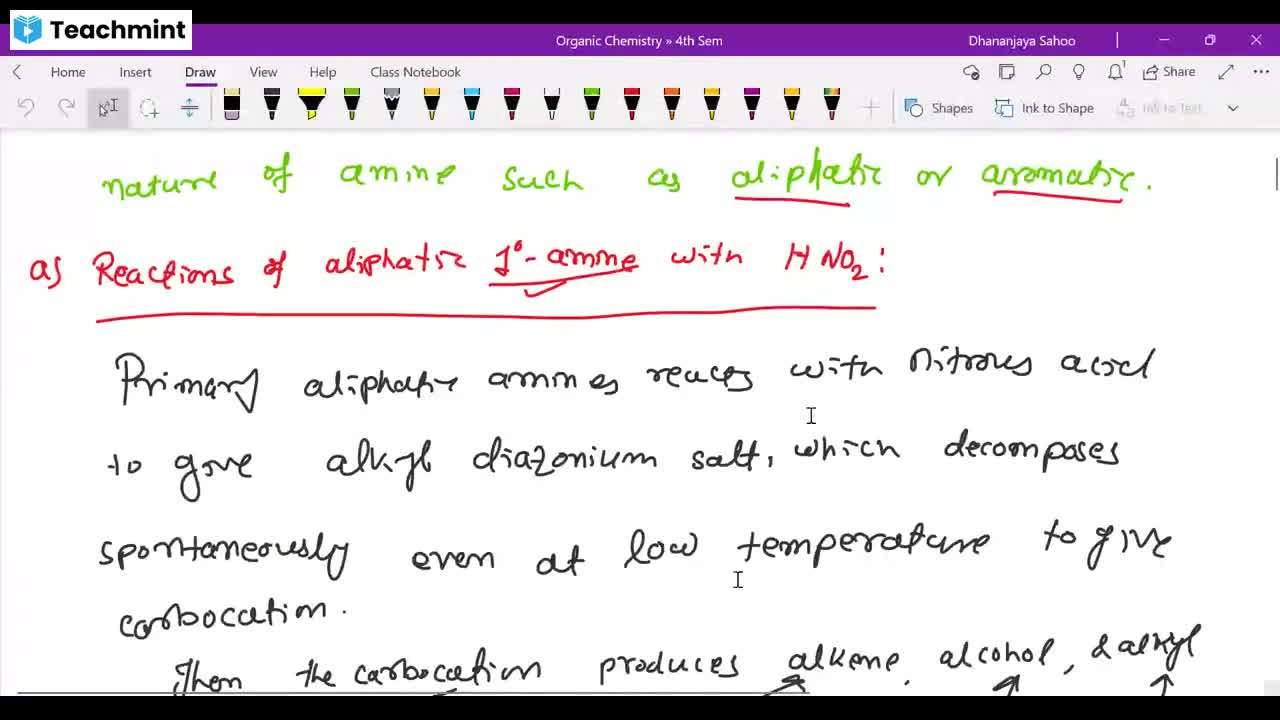 Teachmint
Organic Chemistry » 4th Sem
Dhananjaya Sahoo
Home Insert Draw View Help Class Notebook
Share
Shapes Ink to Shape Ink to Text
nature of amine such as aliphatic or aromatic.
a) Reactions of aliphatic 1°-amine with HNO₂:
Primary aliphatic amines reacts with nitrous acid
to give alkyl diazonium salt, which decomposes
spontaneously even at low temperature to give
carbocation.
Then the carbocation produces alkene, alcohol, & alkyl